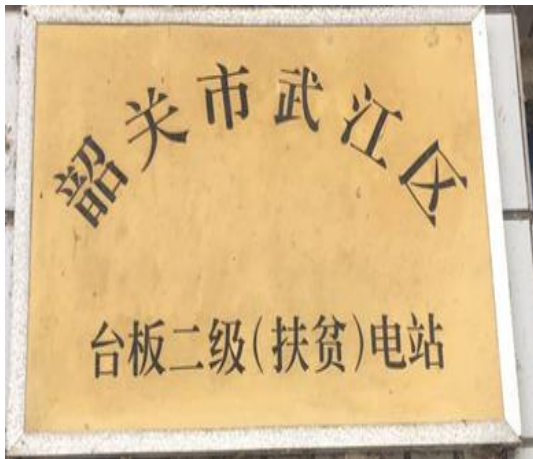 韶关市武江区
台板二级(扶贫)电站